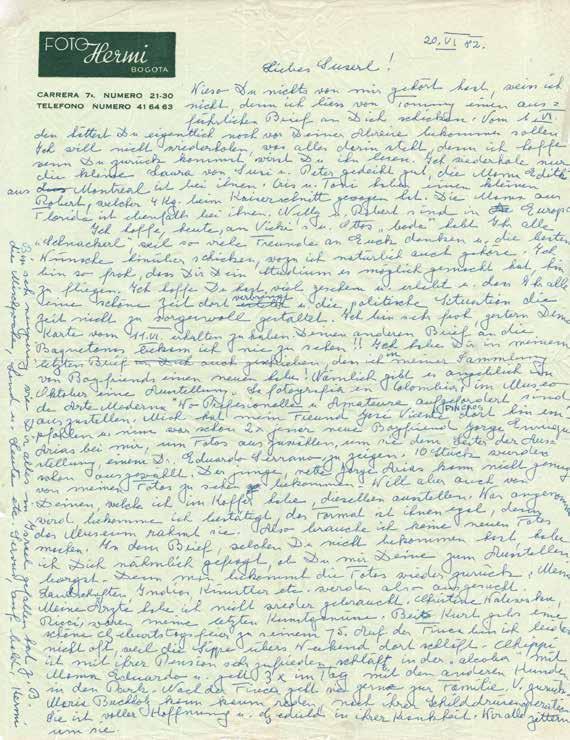 FOTO Hermi
BOGOTA
CARRERA 7a. NUMERO 21-30
TELEFONO NUMERO 41 64 63
20. VI. 82.
Liebes Suserl!
Wieso Du nichts von mir gehört hast, weiss ich
nicht, denn ich liess von Tommy einen aus=
führlichen Brief an Dich schicken. Vom 1. VI.
den hättest Du eigentlich noch vor Deiner Abreise bekommen sollen.
Ich will nicht wiederholen, was alles darin steht, denn ich hoffe
wenn Du zurück kommst, wirst Du ihn lesen. Ich wiederhole nur
die kleine Laura von Susi u. Peter gedeiht gut, die Moma Edith
aus Montreal ist bei ihnen. Cris u. Toni haben einen kleinen
Robert, welcher 4 Kg. beim Kaiserschnitt gewogen hat. Die Moma aus
Florida ist ebenfalls bei ihnen. Willy u. Robert sind in Europa
Ich hoffe, heute, an Vicki's u. Ottos "boda" habt Ihr alle
"Schnackerl" weil so viele Freunde an Euch denken u. die besten
Wünsche hinüber schicken, wozu ich natürlich auch gehöre. Ich
bin so froh, dass Dir Dein Studium es möglich gemacht hat, hin
zu fliegen. Ich hoffe Du hast viel gesehen u. erlebt u. dass Ihr alle
eine schöne Zeit dort verbringt u. die politische Situation die
Zeit nicht zu sorgenvoll gestaltet. Ich bin sehr froh gestern Deine
Karte vom 11. VI. erhalten zu haben. Deinen anderen Brief an die
Bagnetons, bekam ich nie zu sehen!! Ich habe Dir in meinem
letzten Brief auch geschrieben, dass ich in meiner Sammlung
von Boyfriends einen neuen habe! Nämlich gibt es angeblich im
Oktober eine Ausstellung. La fotografia en Colombia, im Museo
de Arte Moderna. No Profesionelle u. Amateure aufgefordert sind
auszustellen. Mich hat mein Freund José Vicente PINCROS em=
pfohlen u. nun war schon 2x jener neue Boyfriend Jorge Enrique
Arias bei mir, um Fotos auszuwählen, um sie dem Leiter der Aus
stellung, einem D. Eduardo Serrano zu zeigen. 10 Stück wurden
schon ausgewählt. Der junge, nette Jorge Arias kann nicht genug
von meinen Fotos zu sehen bekommen. Will aber auch von
Deinen, welche ich im Koffer habe, dieselben ausstellen. War angenommen
wird bekomme ich bestätigt, das Format ist ihnen egal, denn
das Museum rahmt sie. Also brauche ich keine neuen Fotos
machen. In dem Brief, welchen Du nicht bekommen hast, habe
ich Dich nähmlich gefragt, ob Du mir Deine zum Ausstellen
borgst. Denn man bekommt die Fotos wieder zurück. Meine
Landschaften, Indios, Künstler etc. werden also ausgesucht.
Meine Ärzte habe ich nicht wieder gebraucht. Christine
waren meine letzten Kunstgenüsse. Beits Kurt gabs eine
schöne Geburtstagsfeier zu seinem 75. Auf der Finca bin ich leider
nicht oft, weil die Sippe übers Weekend dort schläft. Chippi
ist mit ihrer Pension sehr zufrieden, schläft in der "alcoba" mit
Moma Eduardo u. geht 3x im Tag mit den anderen Hunden
in den Park. Nach der Finca geht sie gerne zur Familie V. zurück.
Marie Buchholz kann kaum reden nach ihrer Schilddrüsenoperation
Sie ist voller Hoffnung u. Geduld in ihrer Krankheit. Wir alle zittern
um sie.
Bin sehr neugierig, wie Dir alles in Israel gefallen hat z. B.
die Landschaft, Land u. Leute etc. Servus, auf bald Hermi